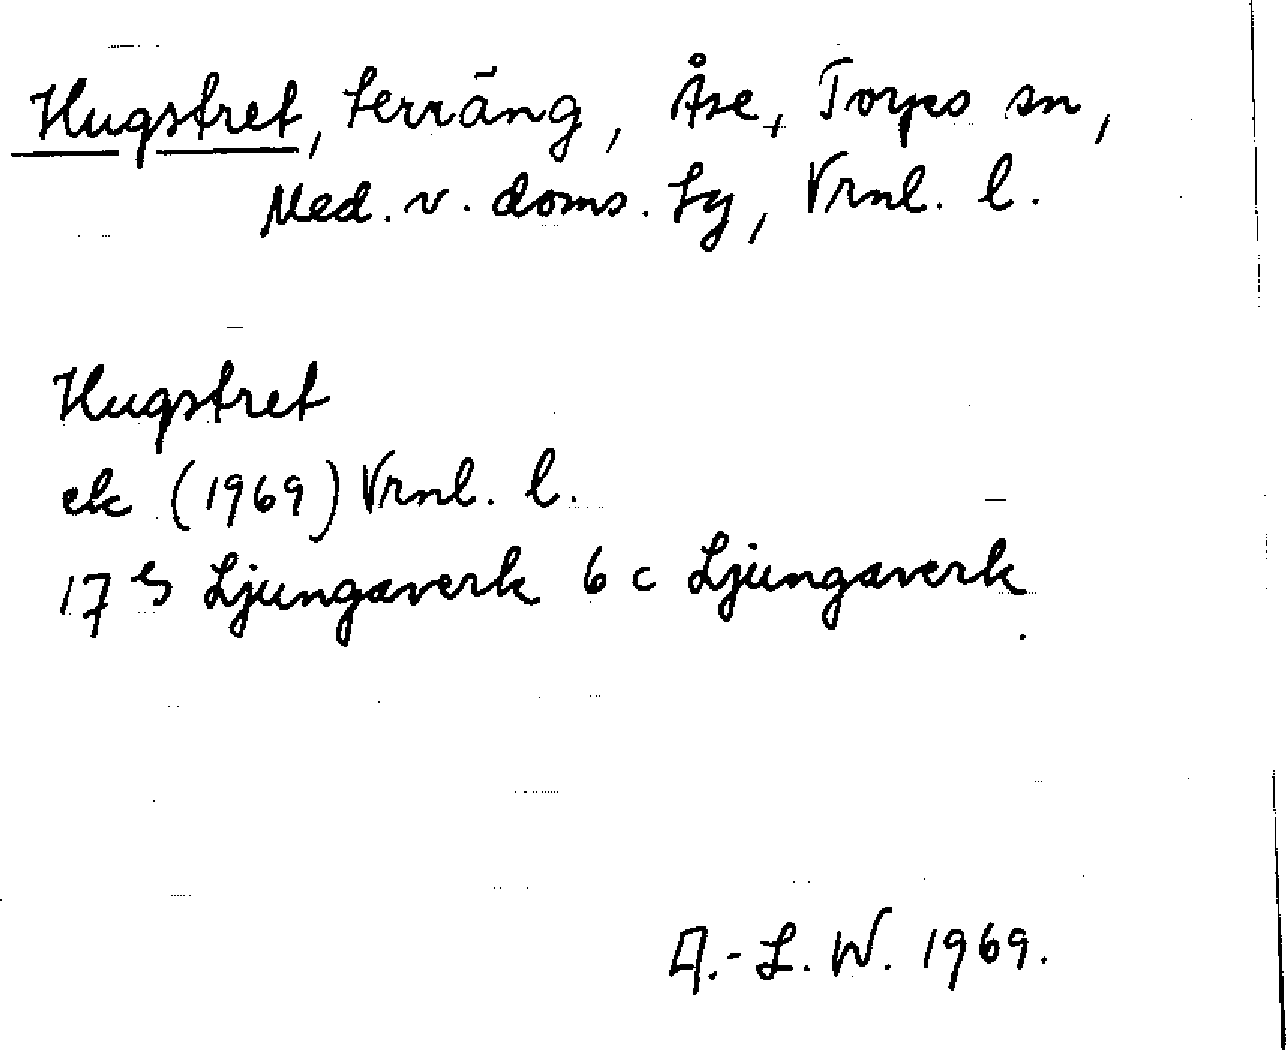 Hugstret, terräng, Åse, Torps sn,
Med. v. doms. Ly, Vrnl. l.
Hugstret
ek (1969) Vrnl. l.
17 G Ljungaverk 6 c Ljungaverk
A.-L. W. 1969.